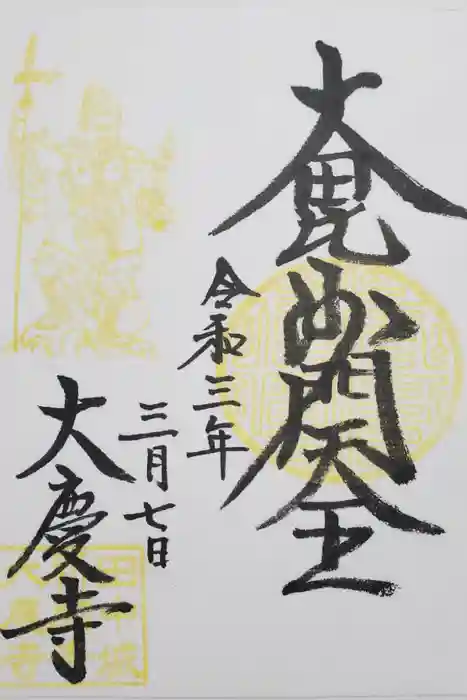 大毘沙門天王
令和三年
三月七日
大慶寺